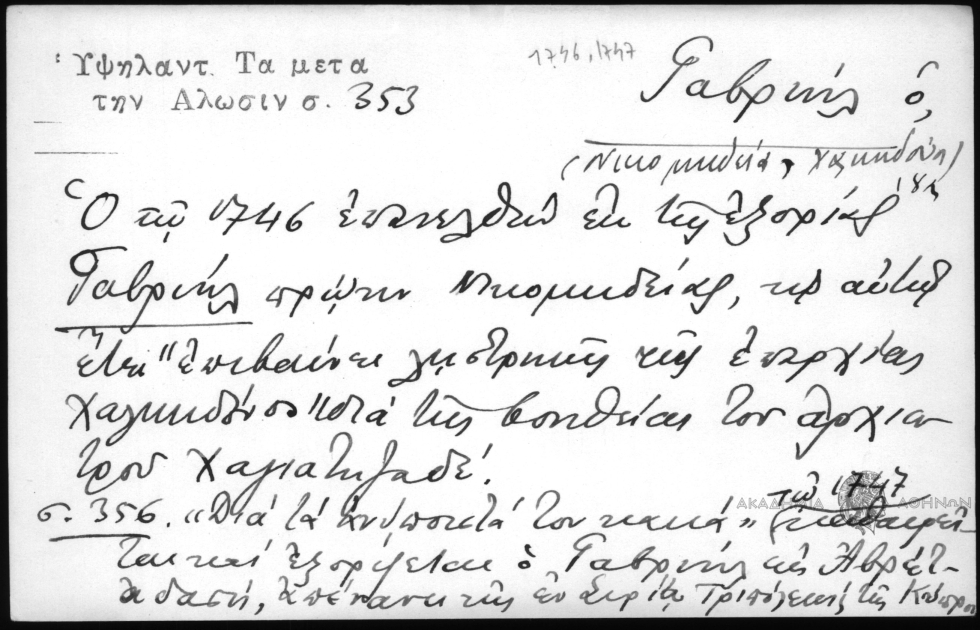 Ὑψηλαντ. Τα μετα
την Αλωσιν σ. 353
1746, 1747
Γαβριήλ ὁ,
(Νικομηδείας, Χαλκηδόνος)
Ὁ τῷ 1746 ἐπανελθὼν ἐκ τῆς ἐξορίας
Γαβριήλ πρώην Νικομηδείας, τῷ αὐτῷ
ἔτει "ἐπιβαίνει λῃστρικῶς τῆς ἐπαρχίας
Χαλκηδόνος" διὰ τῆς βοηθείας του ἀρχια-
τροῦ Χαγιατηζαδέ.
σ. 356. "Διὰ τὰ ἀνύποιστά του κακά" τῷ 1747
ται καὶ ἐξορίζεται ὁ Γαβριήλ εἰς Ἀβρέτ-
ἀπέναντι τῆς ἐν Συρίᾳ Τριπόλεως τῆς Κύπρου
ΑΚΑΔΗΜΙΑ ΑΘΗΝΩΝ